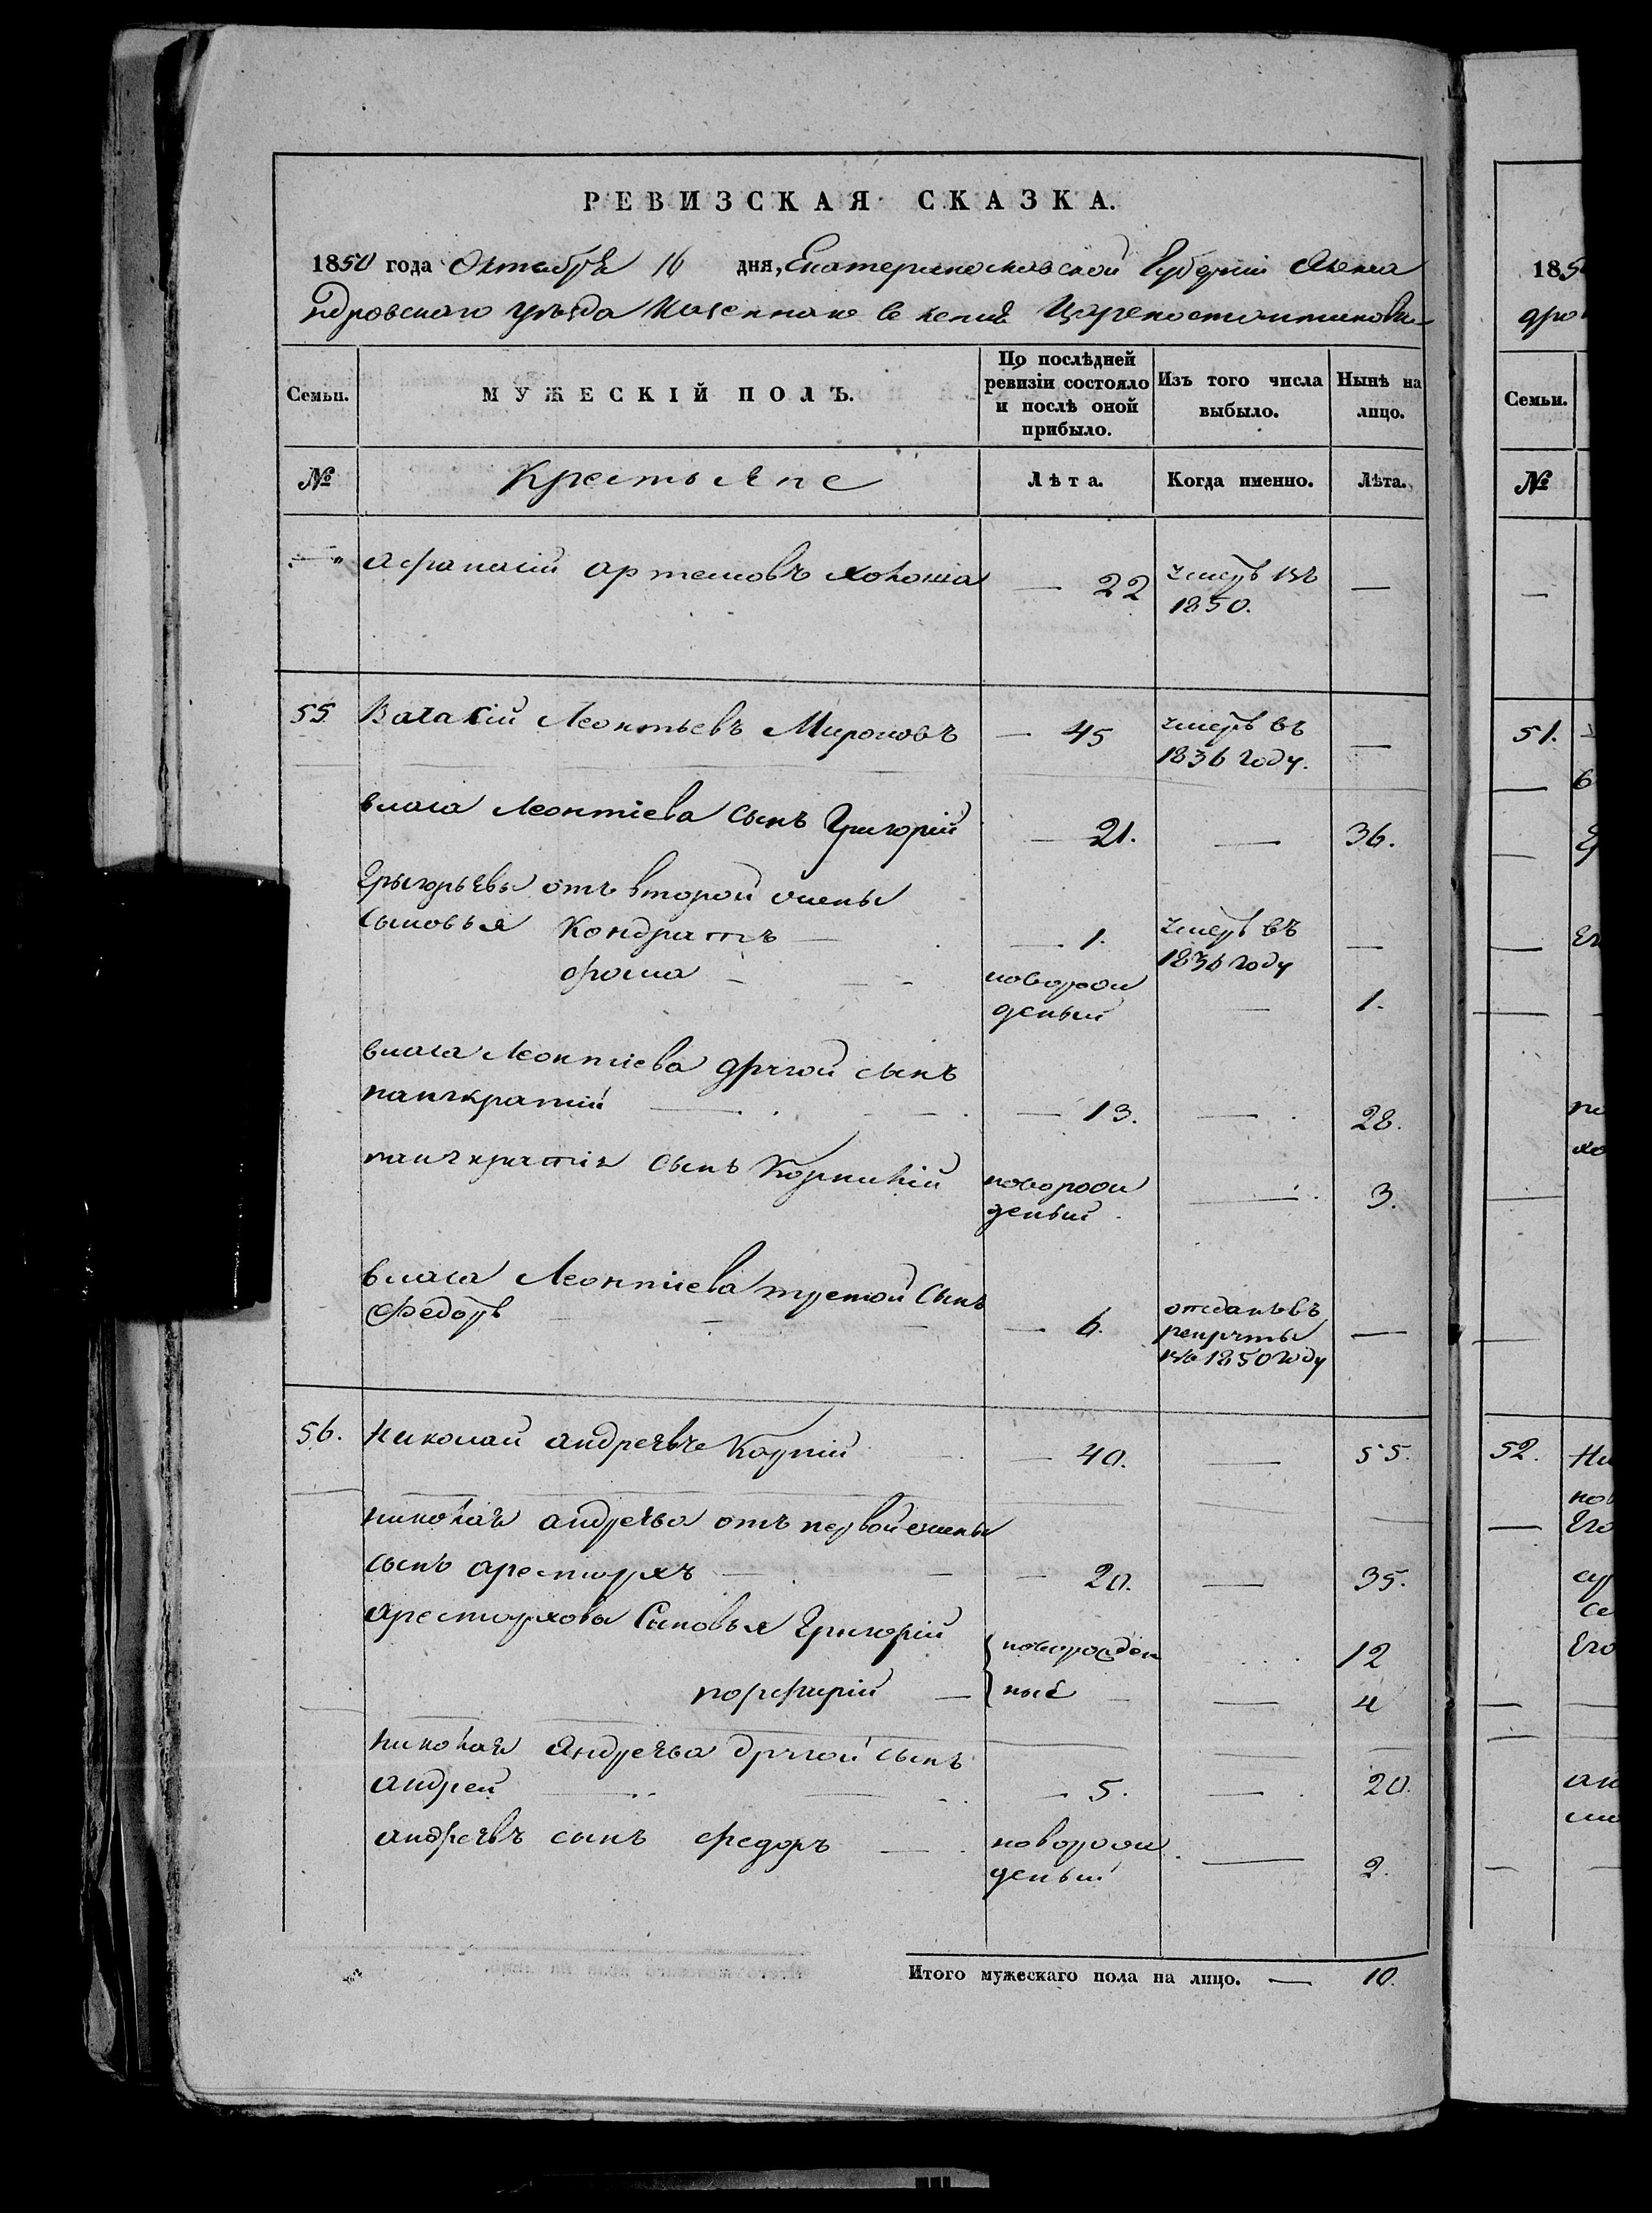 РЕВИЗСКАЯ СКАЗКА.
1850 года Октября 16 дня, Екатеринославской Губерніи Алекса
ндровского уезда Казеннаго селенія Цареконстантинов
Семьи. МУЖЕСКІЙ ПОЛЪ. По послѣдней ревизіи состояло и послѣ оной прибыло. Изъ того числа выбыло. Нынѣ на лицо.
№ Крестьяне Лѣта. Когда именно. Лѣта.
Афанасій Артемовъ 22 умеръ въ 1850. —
55 Леонтьевъ Мироновъ — 45 умеръ въ 1836 году. —
власа Леонтіева сынъ Григорій — 21. — 36.
Григорьевы отъ второй жены
сыновья Кондратъ — 1. умеръ въ 1836 году —
фома — новорож деный — 1.
власа Леонтіева другой сынъ
панкратий — 13. — 28.
панкратія сынъ Корнилий новорож деный — 3.
власа Леонтіева третой сынъ
Федоръ — 6. отданъ въ рекруты въ 1850 году —
56. Николай андреевъ — 40. — 55.
николая андреева отъ первой жены
сынъ арестархъ — 20. — 35.
арестархова Сыновья Григорій новорожден 12
порфирій — ные — 4
николая Андреева другой сынъ
андрей — 5. — 20.
андреевъ сынъ федоръ — новорож деный — 2.
Итого мужескаго пола на лицо. — 10.
185
дро
Семьи.
№
51.
52.